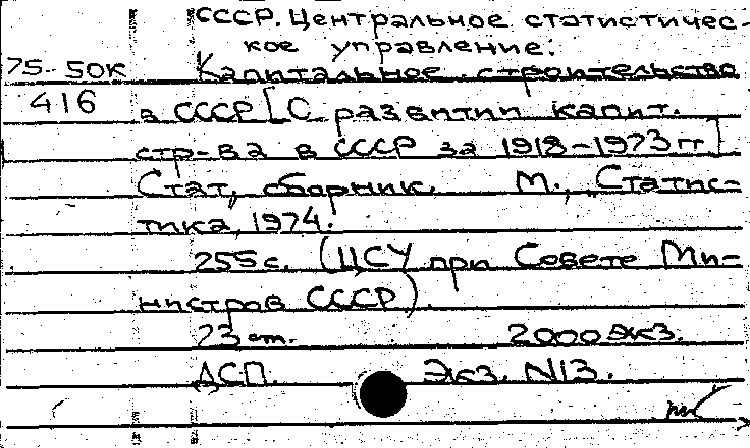 СССР. Центральное статистичес-
кое управление.
75-50К Капитальное строительство
416 в СССР [О развитии капит.
стр-ва в СССР за 1918-1973 гг]
Стат, сборник. М., Статис-
тика, 1974.
255 с. (ЦСУ при Совете Ми-
нистров СССР).
23 см. 2000 экз.
ДСП. Экз. N13.